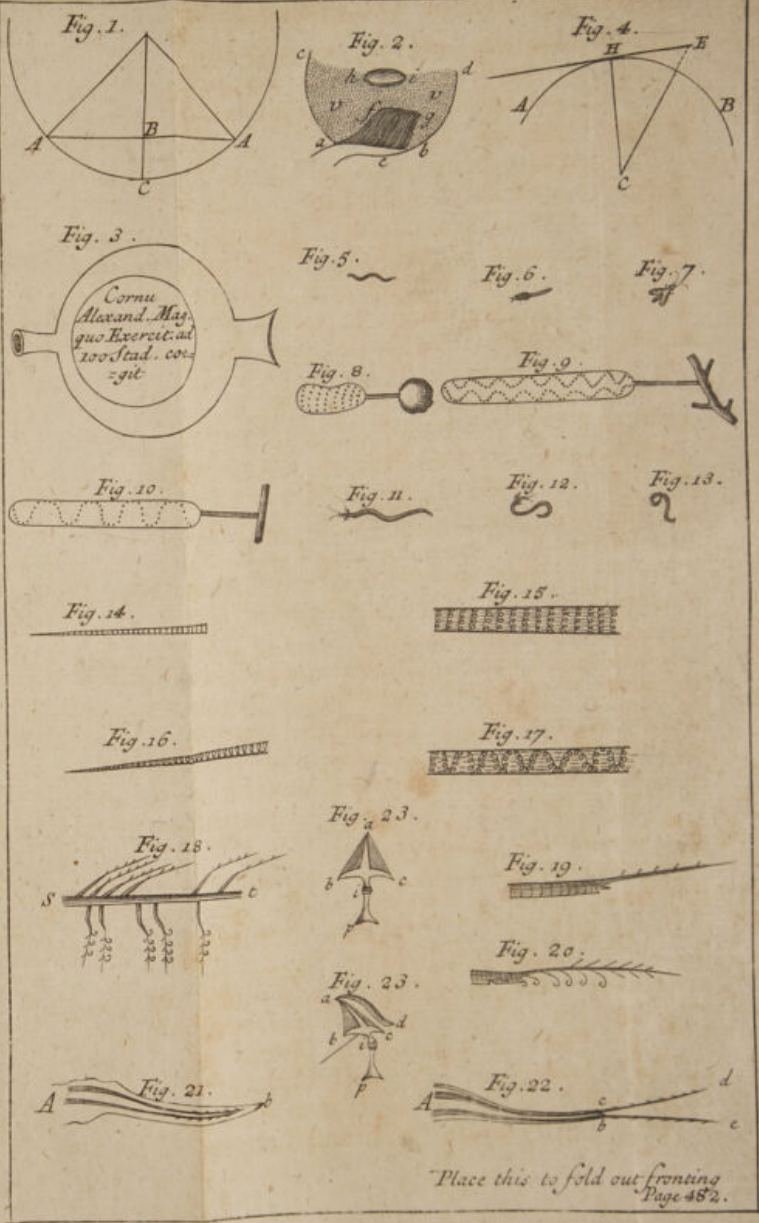 Fig. 1.
A
B
A
C
Fig. 2.
c
d
h
i
v
v
f
g
a
e
b
Fig. 4.
H
E
A
B
C
Fig. 3.
Cornu
Alexand. Mag.
quo Exercit. ad
100 Stad. co=
=git
Fig. 5.
Fig. 6.
Fig. 7.
Fig. 8.
Fig. 9.
Fig. 10.
Fig. 11.
Fig. 12.
Fig. 13.
Fig. 14.
Fig. 15.
Fig. 16.
Fig. 17.
Fig. 18.
S
t
Fig. 23.
a
b
c
i
p
Fig. 19.
Fig. 20.
Fig. 23.
a
b
d
c
i
p
Fig. 21.
A
b
Fig. 22.
A
c
b
d
e
Place this to fold out fronting
Page 482.